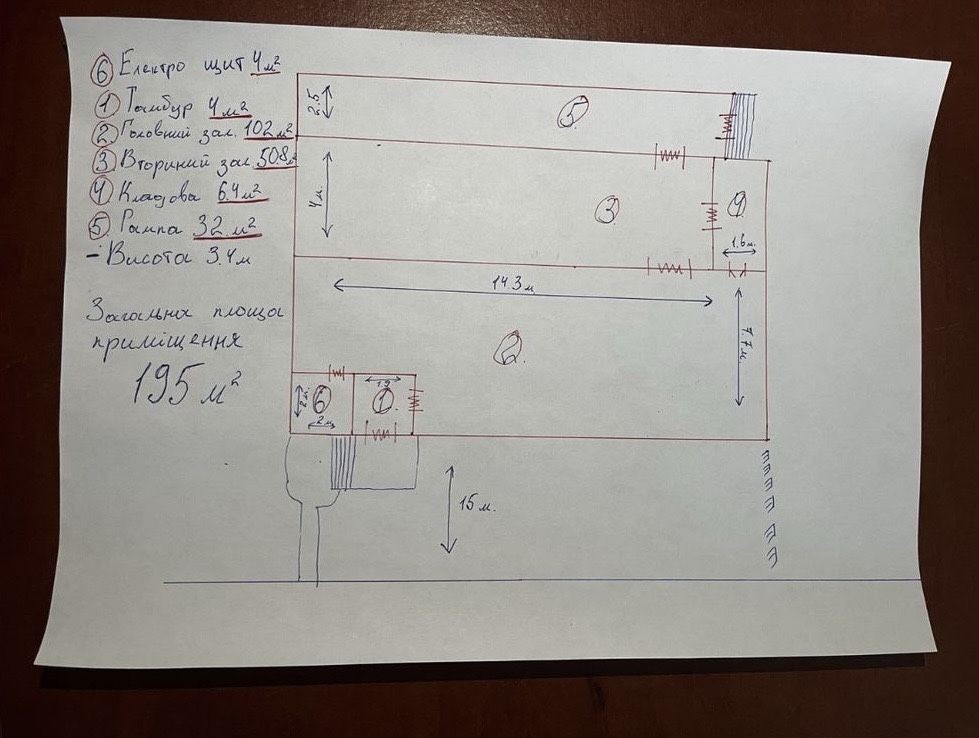 ⑥ Електро щит 4м²
① Тамбур 4м²
② Головний зал. 102м²
③ Вториний зал. 508м
④ Кладова 6.4м²
⑤ Рампа 32.м²
- Висота 3.4м
Загальна площа
приміщення
195м²
2.5
⑤
4м.
③
④
1.6м.
14.3м
②
7.7м.
2м.
⑥
2м
1.9
①.
15м.